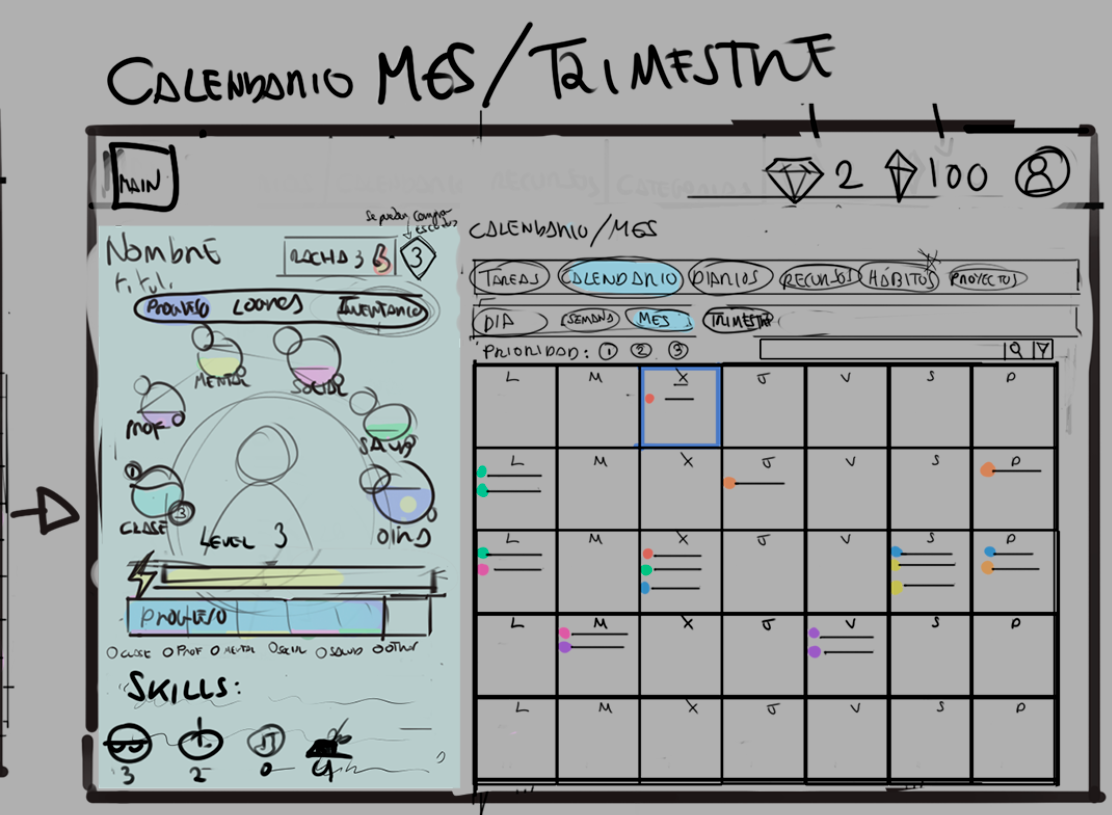 CALENDARIO MES/TRIMESTRE
MAIN
2
100
Se pueden comprar
escudos
NOMBRE
RACHA 3
3
PROGRESO LOGROS INVENTARIO
MENTAL
SOCIAL
PROF
SALUD
1
CLASE
3
OTROS
LEVEL 3
PROGRESO
CLASE PROF MENTAL SOCIAL SALUD OTHER
SKILLS:
3 2 0 4
CALENDARIO/MES
TAREAS CALENDARIO DIARIOS RECURSOS HÁBITOS PROYECTOS
DIA SEMANA MES TRIMESTRE
PRIORIDAD: 1 2 3
L M X J V S D
L M X J V S D
L M X J V S D
L M X J V S D
L M X J V S D